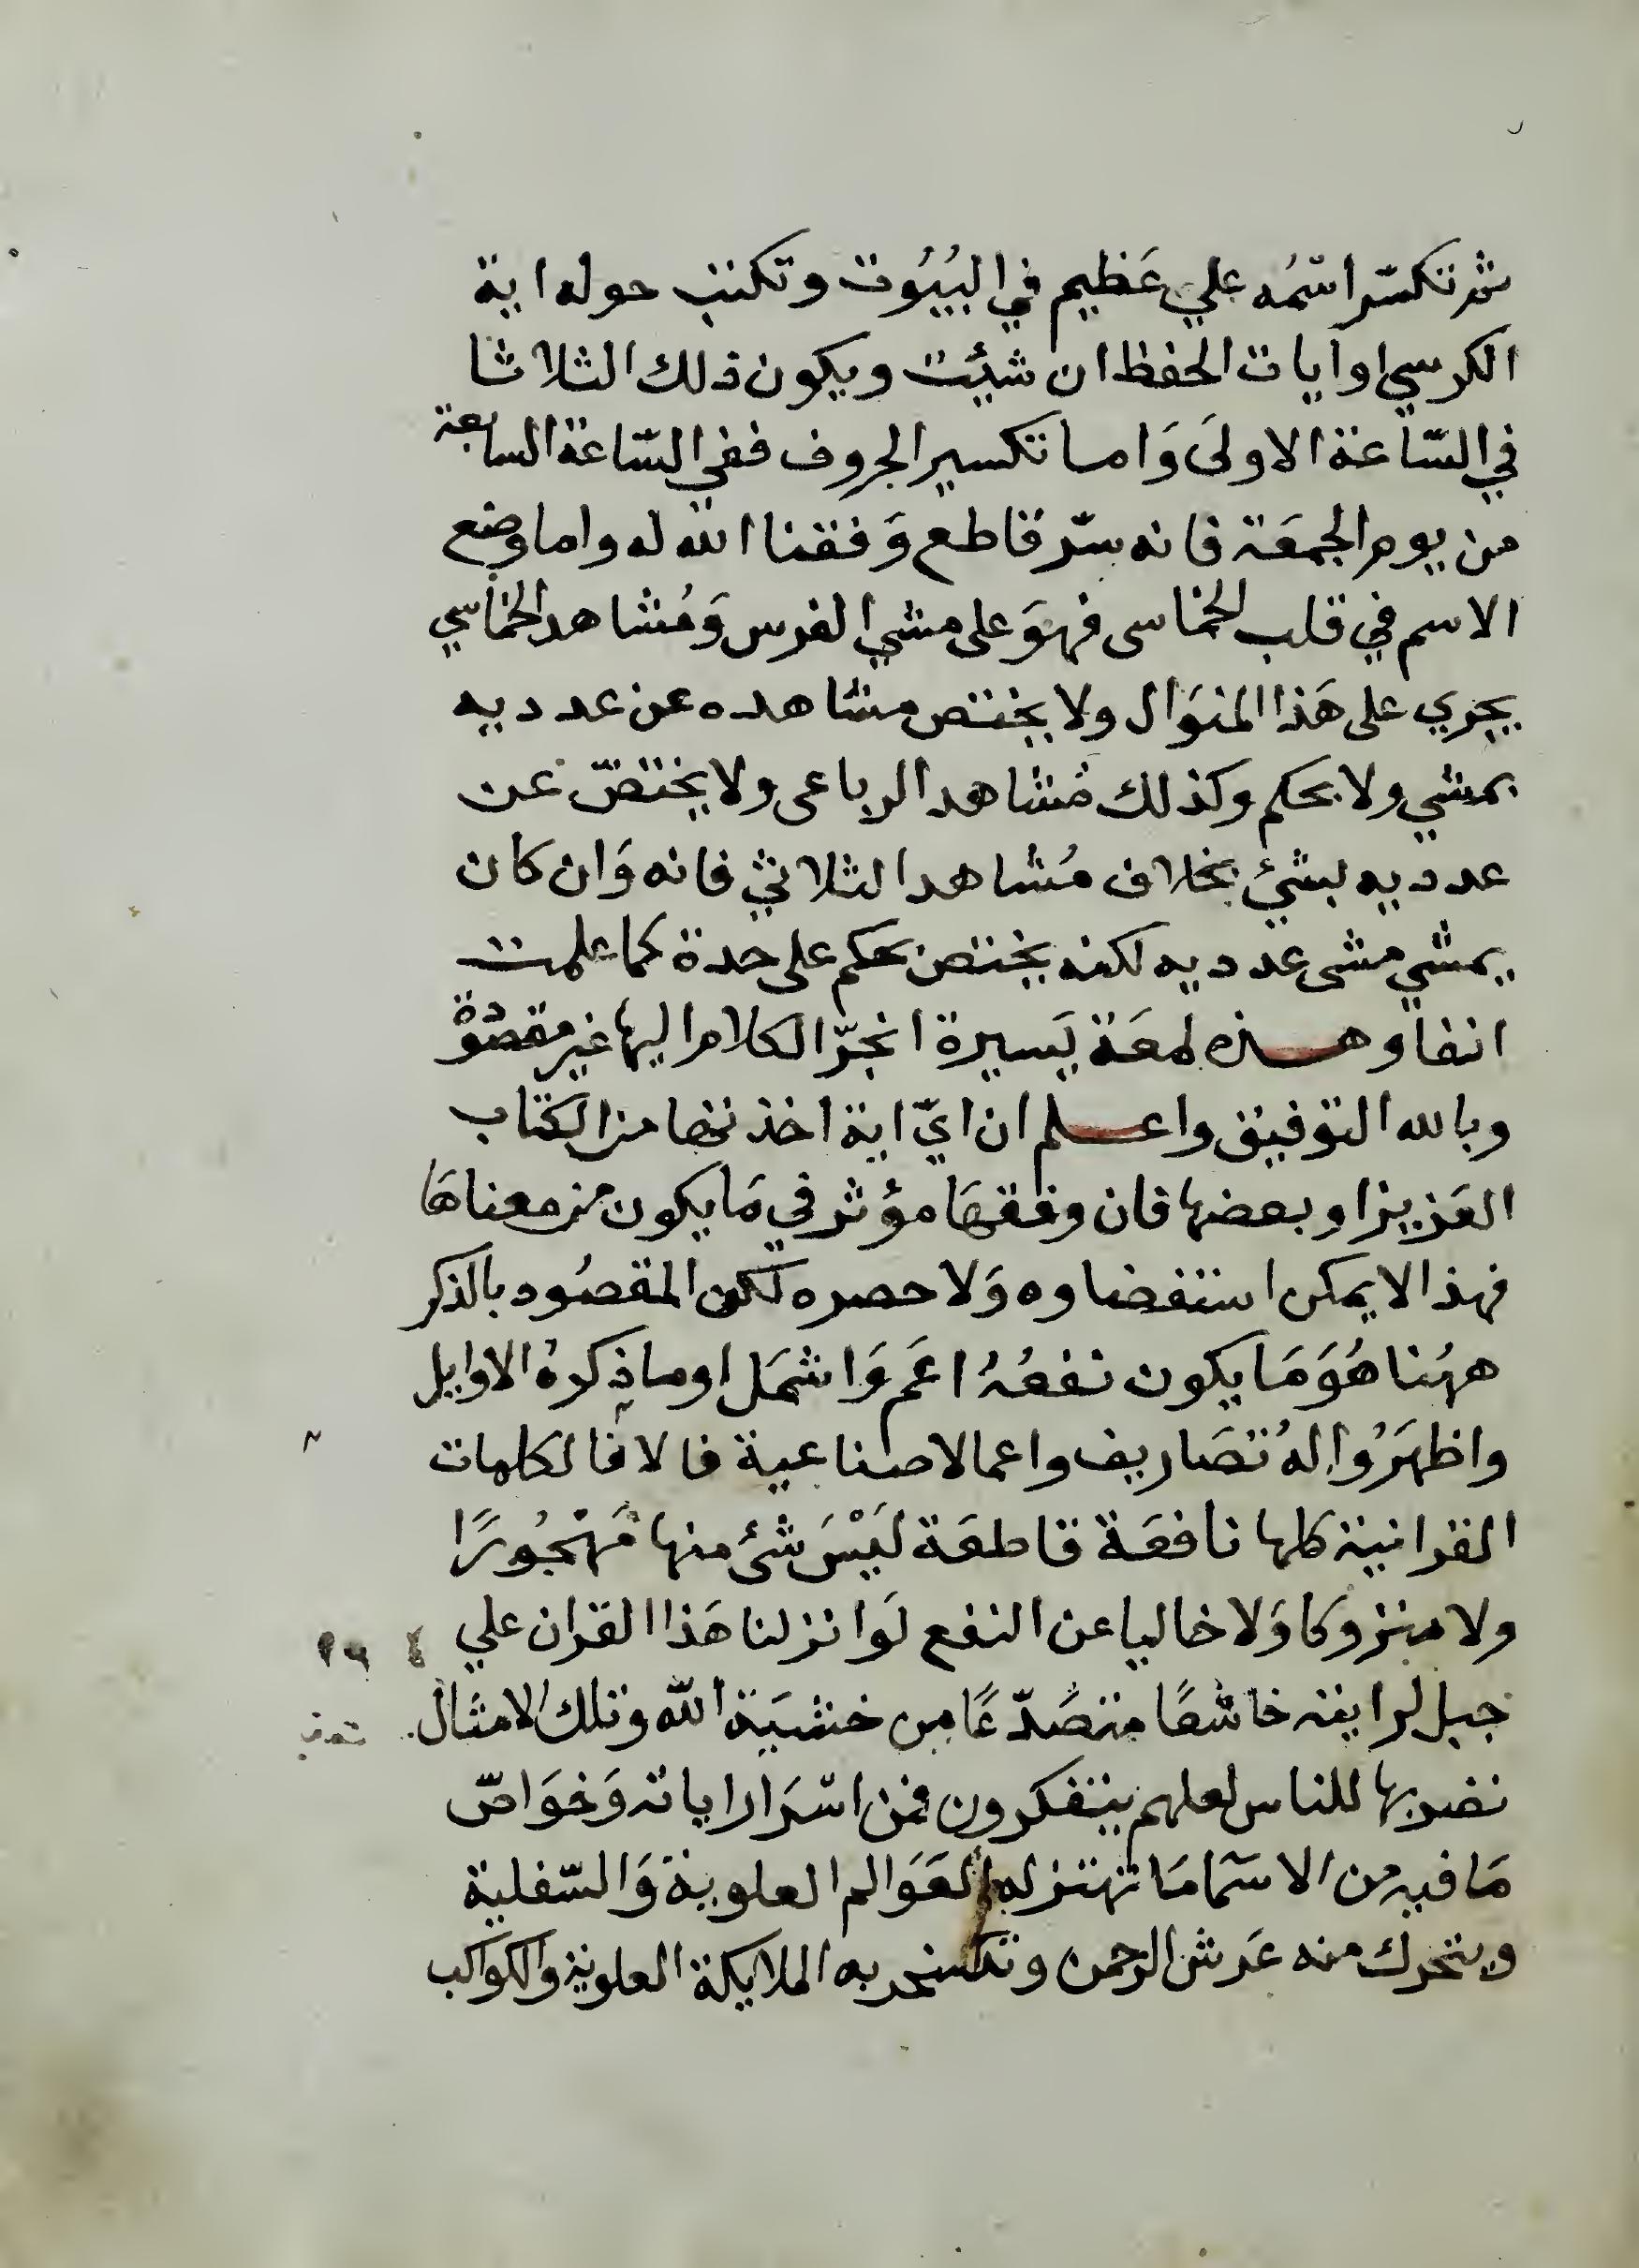 ثم تكسّر اسّمُه علي عَظيم في البُيُوت وتكتب حوله اية
الكرسي او ايات الحفظ ان شيئت ويكون ذلك الثلاثا
في السّاعة الاولىَ وَاما تكسير الحروف ففي السّاعة السابعة
من يوم الجمعَة فانه سرّ قاطع وَفقنا الله له واما وضع
الاسم في قلب الخماسى فهوَ على مشي الفرس وَمُشاهد الخماسي
يجري على هَذا المنوَال ولا يختص مشاهده عن عدديه
بمشي ولا بحكم وكذلك مُشاهد الرباعى ولا يختصّ عن
عدديه لبشئ بخلاف مُشاهد الثلاثي فانه وَان كان
يمشي مشى عدديه لكنه يختص بحكم على حدة كما علمت
انفا وهذه لمعَة يَسيرة انجرّ الكلام اليها غير مقصُودة
وبالله التوفيق واعلم ان ايّ اية اخذتها من الكتاب
العَزيز او بعضها فان وفقهَا مؤثر في مَا يكون من معناهَا
فهذا لا يمكن استقضاوه وَلا حصره لكن المقصُود بالذكر
ههُنا هُوَ مَا يكون نفعُهُ اعَم وَاشمَل او ما ذكرهُ الاوايل
واظهَرُوا لهُ تصَاريف واعمالا صناعية فالا فالكلمات
القرانية كلها نافعَة قاطعَة ليَسْ شئ منها مَهْجُورًا
ولا متروكا وَلا خاليا عن النفع لَو انزلنا هَذا القران علي
جبل لرايته خاشعًا متصَدّعًا من خشيَة الله وتلك الامثال
نضربها للناس لعلهم يتفكرون فمن اسّرَار اياته وَخوَاصّ
مَا فيه من الاسمَا مَا تهتز له العَوَالم العلوية وَالسّفلية
ويتحرك منه عَرش الرحمن وتتسخر به الملايكة العلوية والكواكب